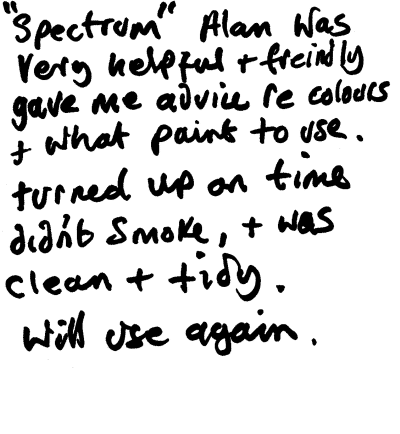 "Spectrum" Alan was
very helpful + freindly
gave me advice re colours
+ what paint to use.
turned up on time
didn't smoke, + was
clean + tidy.
will use again.